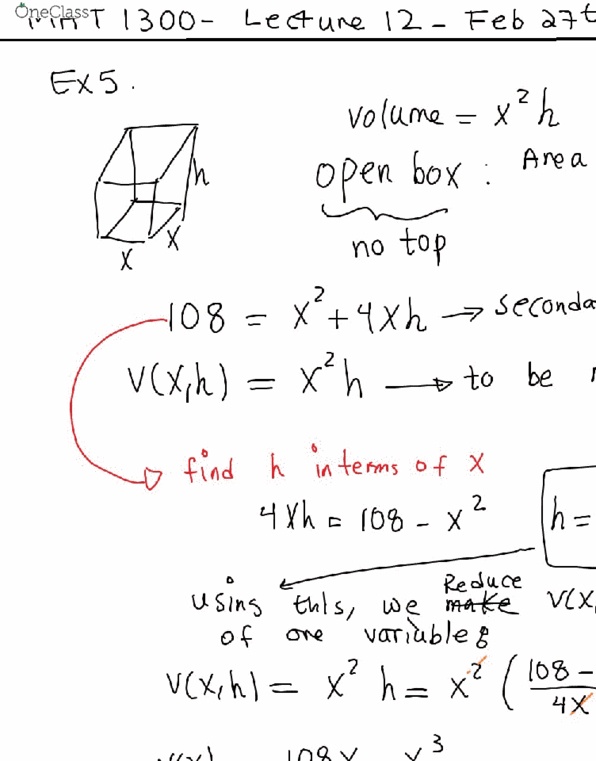 OneClass
1300 - Lecture 12 - Feb 27t
Ex 5.
volume = x² h
open box : Area
h
no top
x
x
108 = x² + 4xh → seconda
V(x,h) = x² h → to be
find h in terms of x
4xh = 108 - x²
h =
Reduce
using this, we make V(x,
of one variable
V(x,h) = x² h = x² (108 -
4x
108x x³